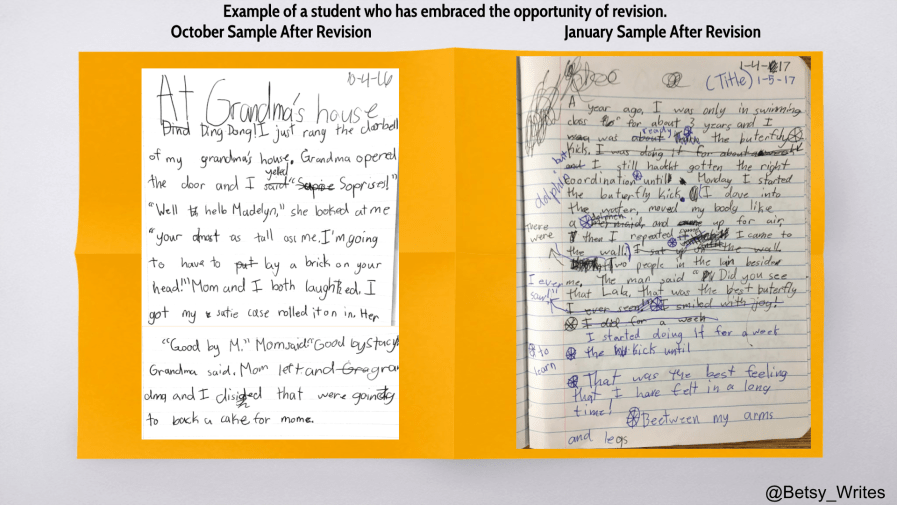 Example of a student who has embraced the opportunity of revision.
October Sample After Revision
January Sample After Revision
10-4-16
At Grandma's house
Dind Ding Dong! I just rang the doorbell
of my grandma's house. Grandma opened
yelled
the door and I said "Soprise!"
"Well hello Madelyn," she looked at me
"your almost as tall as me. I'm going
to have to put lay a brick on your
head!" Mom and I both laughed. I
got my sutie case rolled it on in. Her
"Good by M." Mom said "Good by Stacy
Grandma said. Mom left and gra
dma and I disided that were going
to back a cake for mome.
1-4-17
(Title) 1-5-17
A year ago, I was only in swimming
class for about 3 years and I
was ready the buterfly
kick. I was doing it for about a week
but
and I still hadn't gotten the right
coordination until Monday I started
the buterfly kick. I dove into
the water, moved my body like
a and up for air.
There
were
then I repeated I came to
the wall. I sat up the wall.
two people in the besides
I even
me. The man said " Did you see
said
that Lala, that was the best buterfly
I ever seen I smiled with joy!
I did for a week
I started doing it for a week
to
learn
the kick until
That was the best feeling
that I have felt in a long
time!
Beetween my arms
and legs
@Betsy_Writes